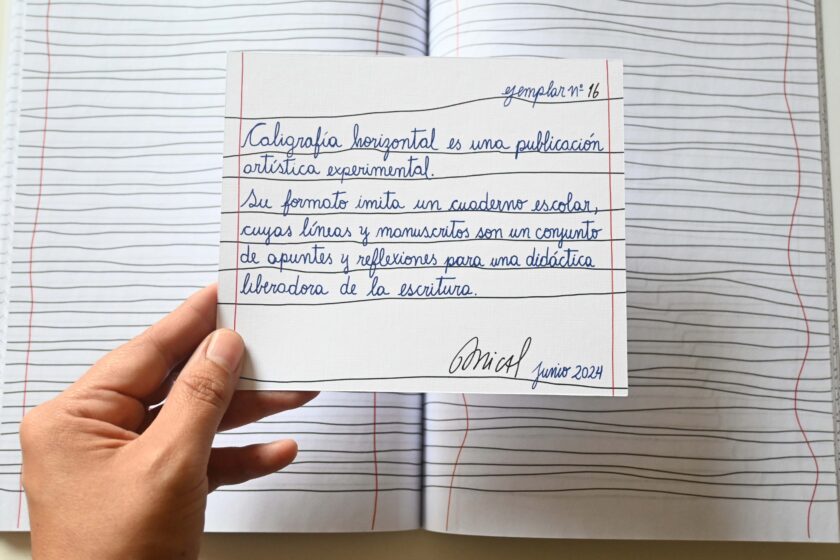 ejemplar nº 16
Caligrafía horizontal es una publicación
artística experimental.
Su formato imita un cuaderno escolar,
cuyas líneas y manuscritos son un conjunto
de apuntes y reflexiones para una didáctica
liberadora de la escritura.
junio 2024